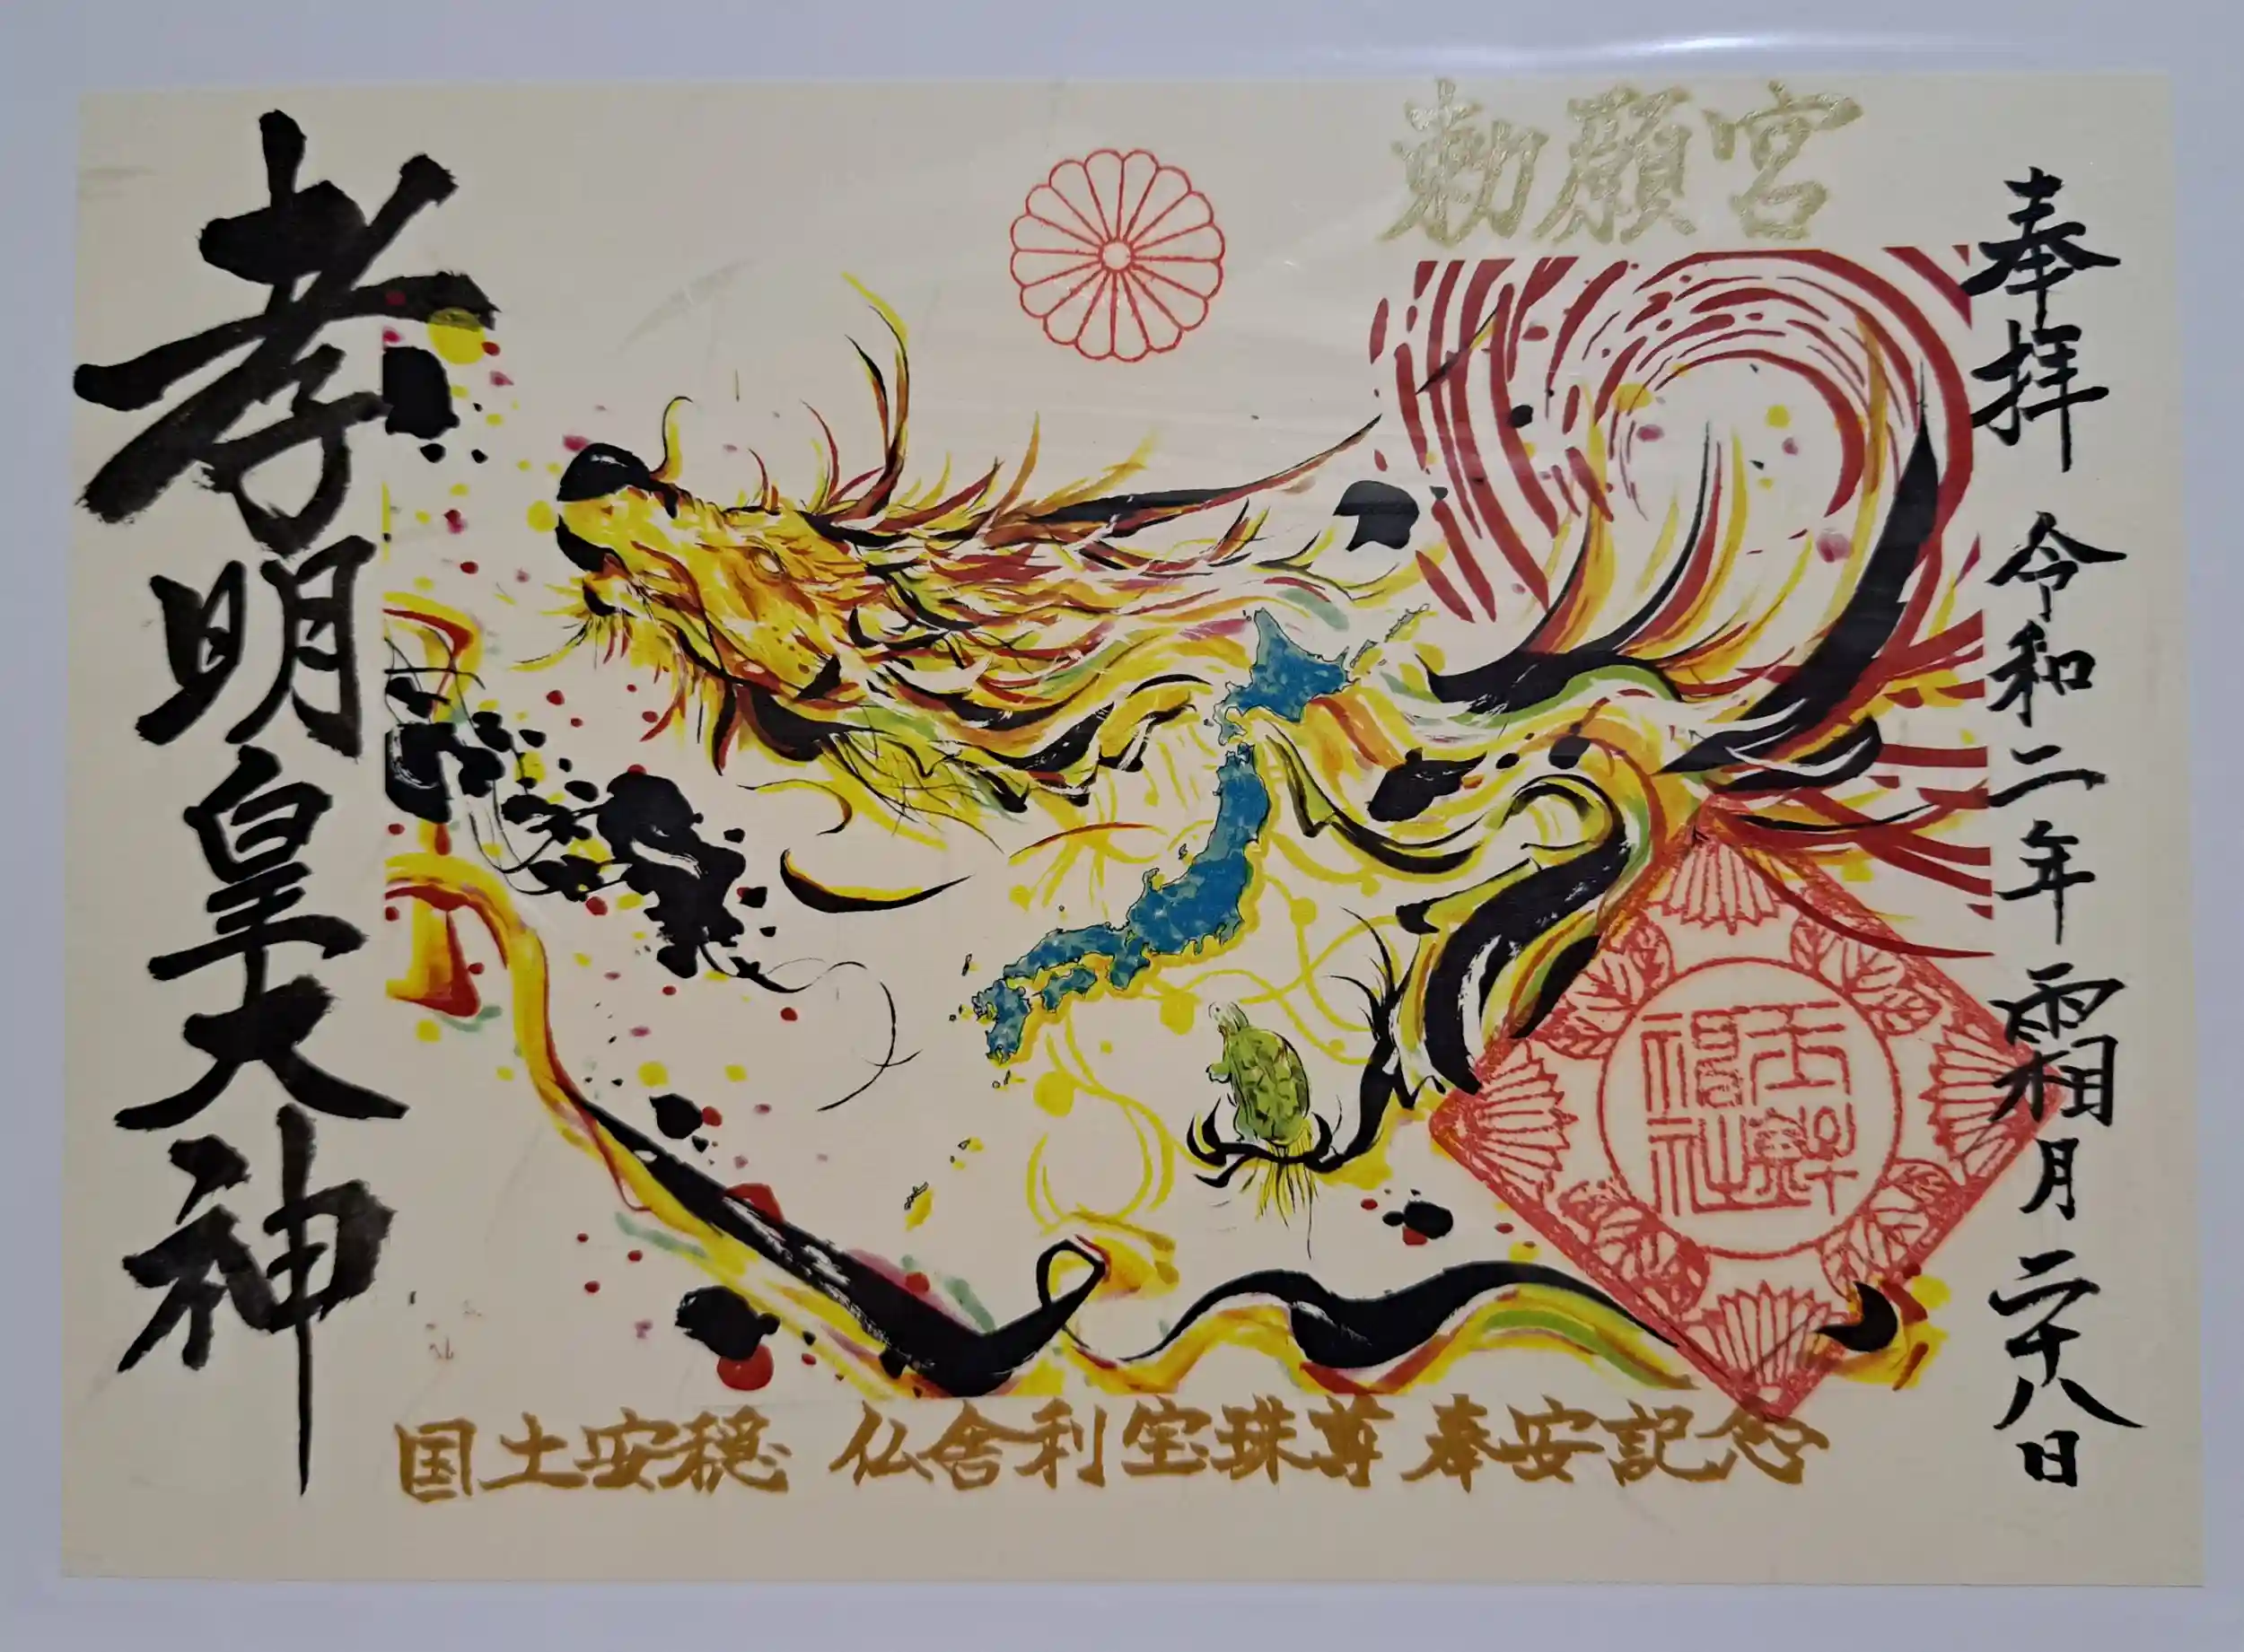 奉拝 令和二年 霜月 二十八日
勅願宮
孝明皇大神
国土安穏 仏舎利宝珠尊 奉安記念